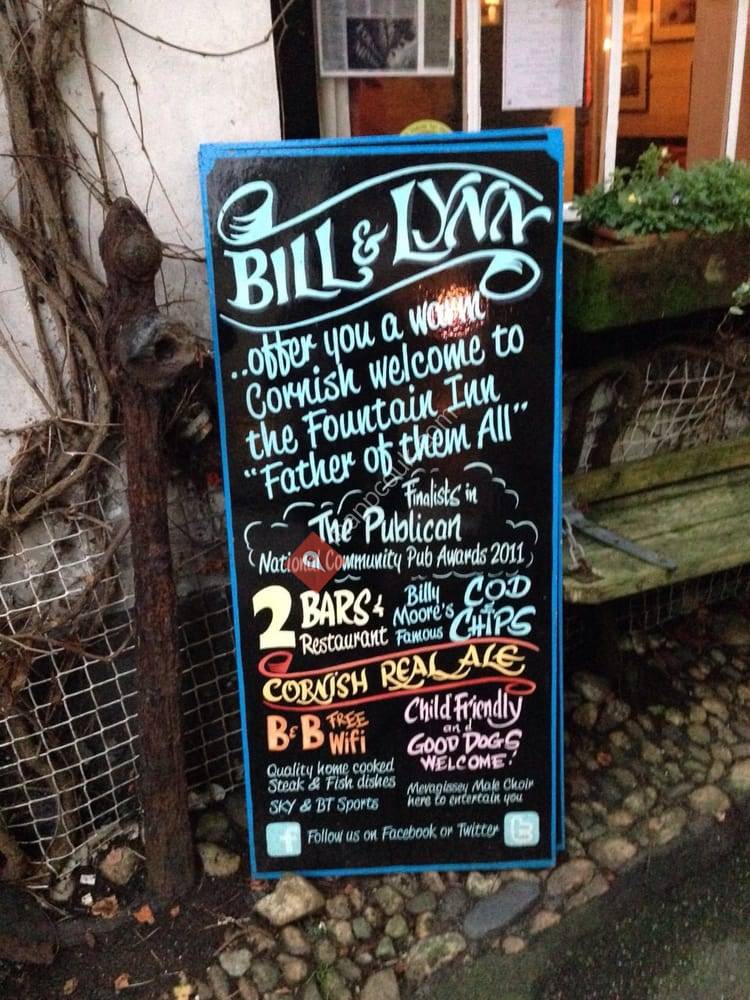 BILL & LYNN
..offer you a warm
Cornish welcome to
the Fountain Inn
"Father of them All"
Finalists in
The Publican
National Community Pub Awards 2011
2 BARS &
Restaurant
Billy
Moore's
Famous
COD
&
CHIPS
CORNISH REAL ALE
B&B FREE
Wifi
Child Friendly
and
GOOD DOGS
WELCOME!
Quality home cooked
Steak & Fish dishes
SKY & BT Sports
Mevagissey Male Choir
here to entertain you
f Follow us on Facebook or Twitter t